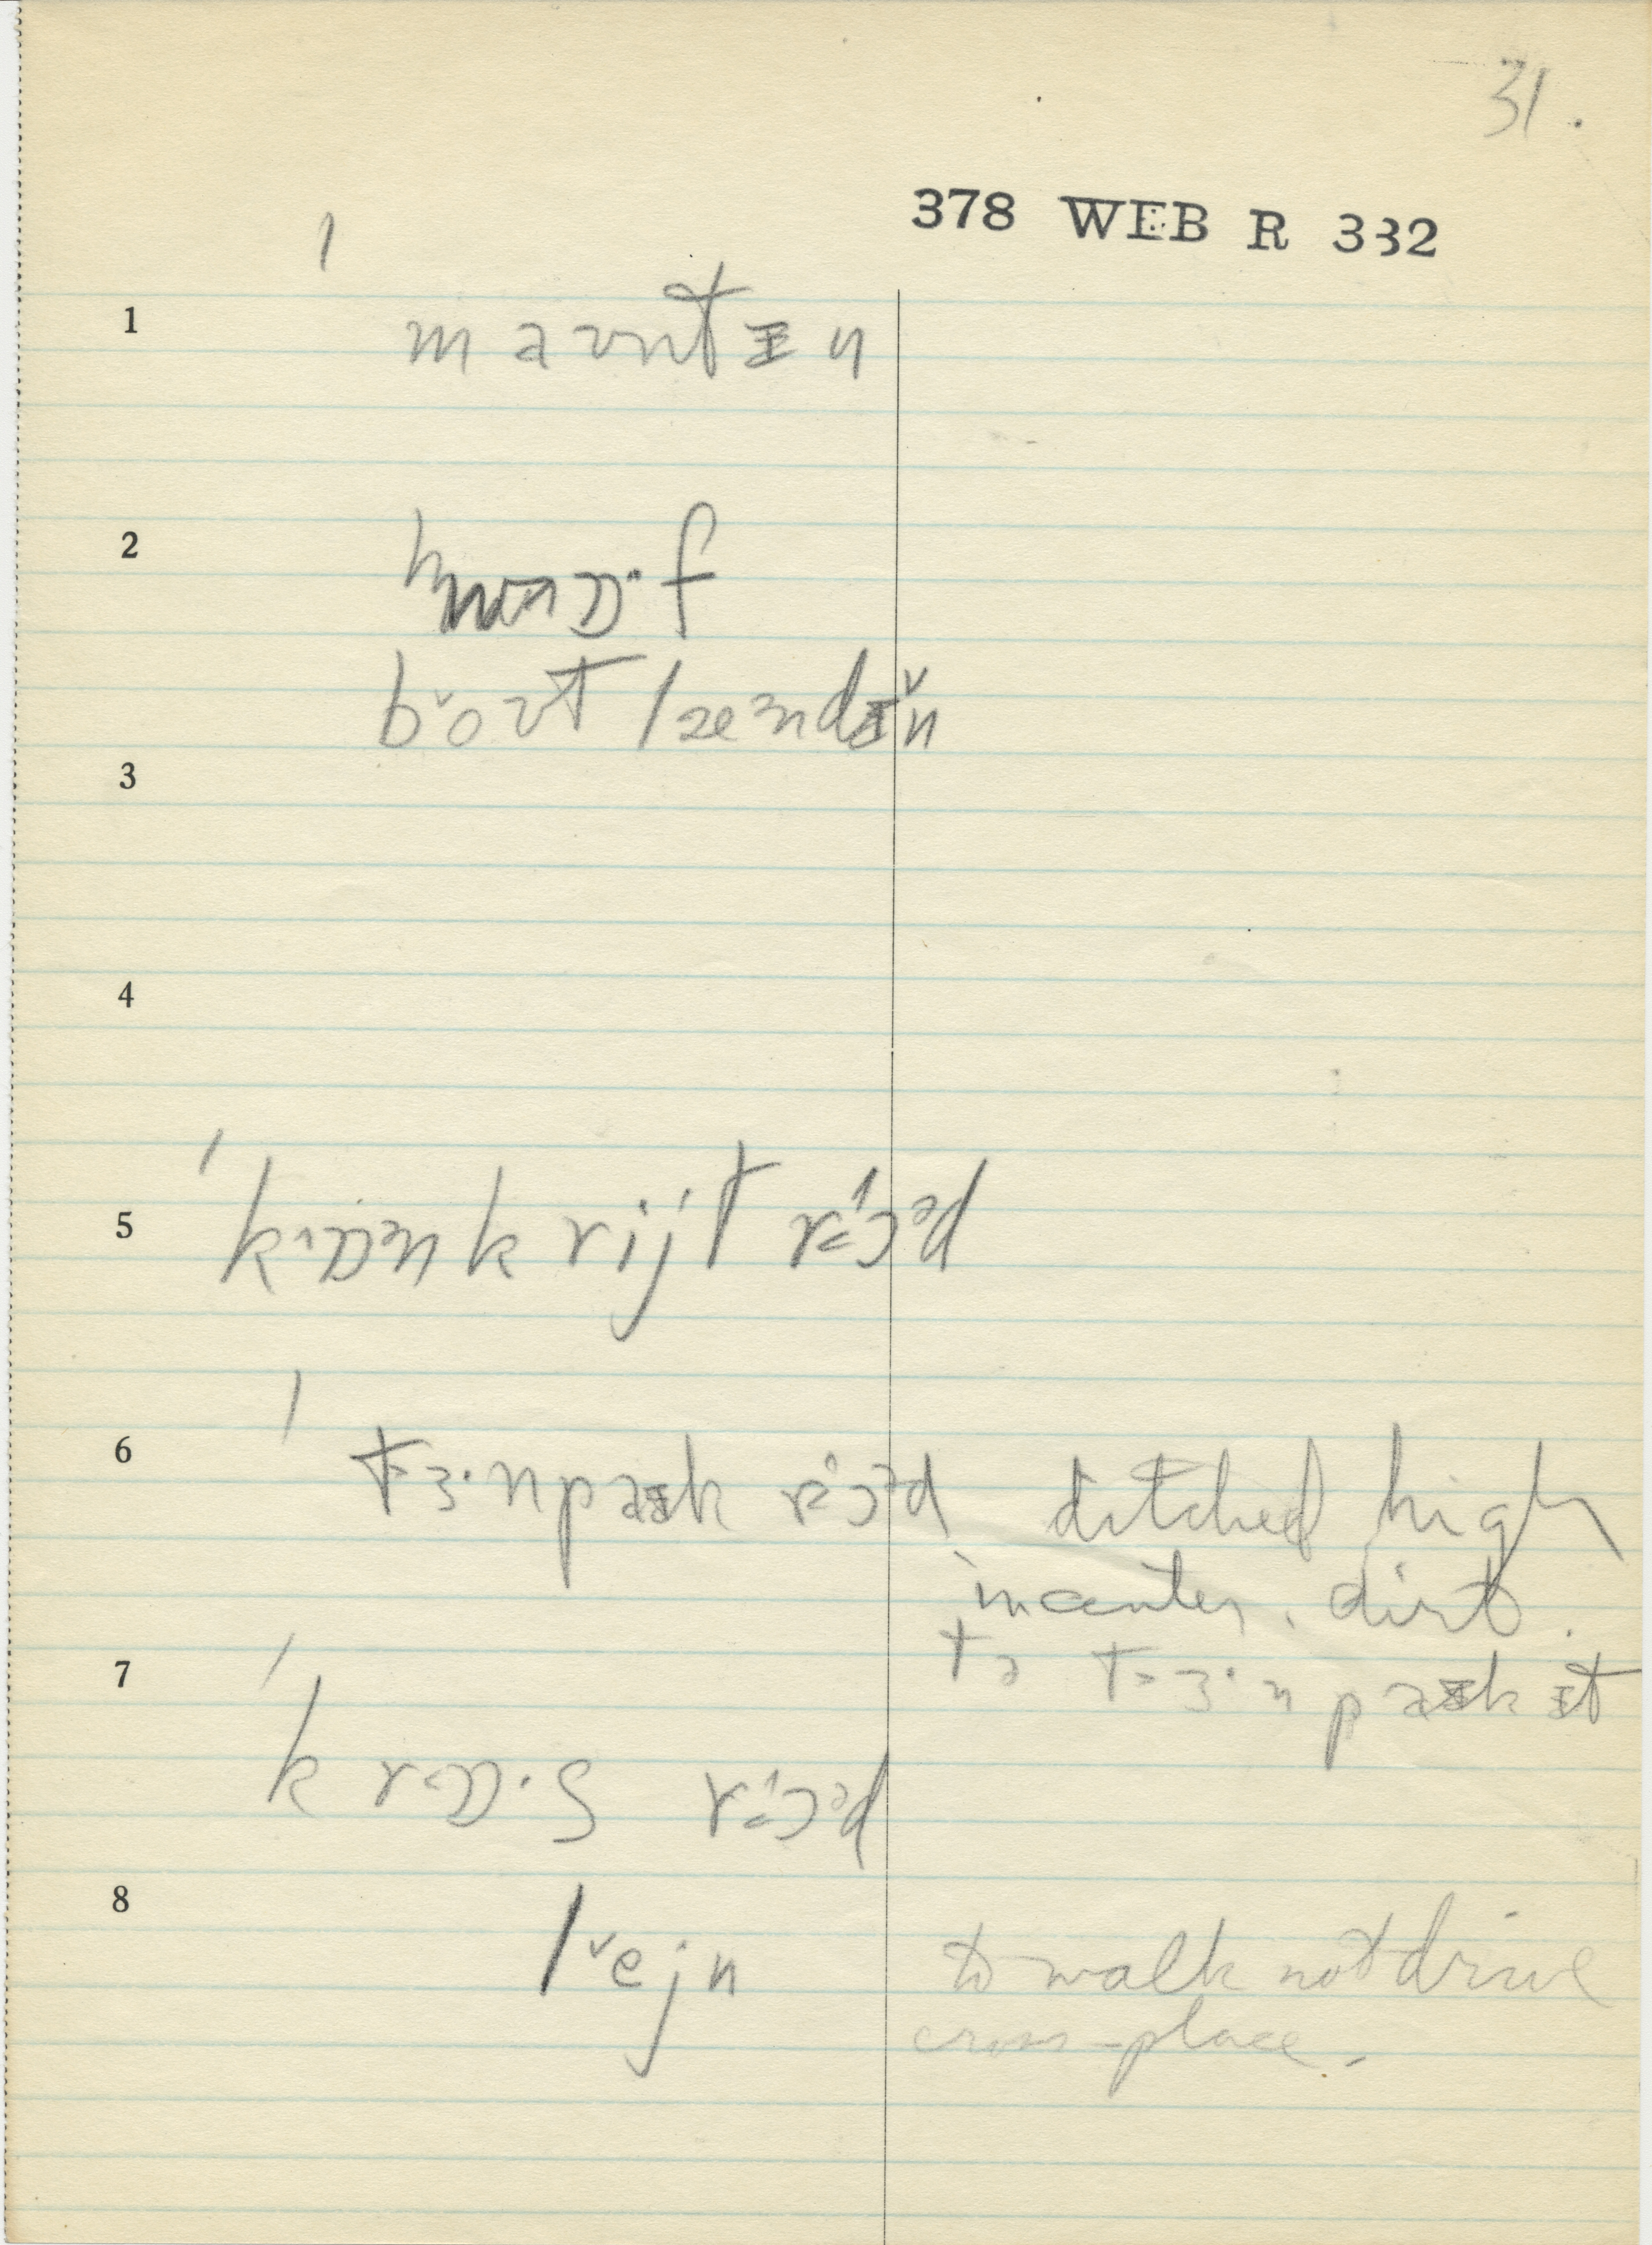 31.
378 WEB R 332
1
1 maʊntᵻn
2 hwɒ·f
boʊt lændᵻn
3
4
5 kɒnkrijt rɔəd
6 tɜ·npaᵻk rɔəd ditched high
in center. dirt.
tə tɜ·npaᵻk ᵻt
7
krɒ·s rɔəd
8 lejn to walk not drive
cross-place.